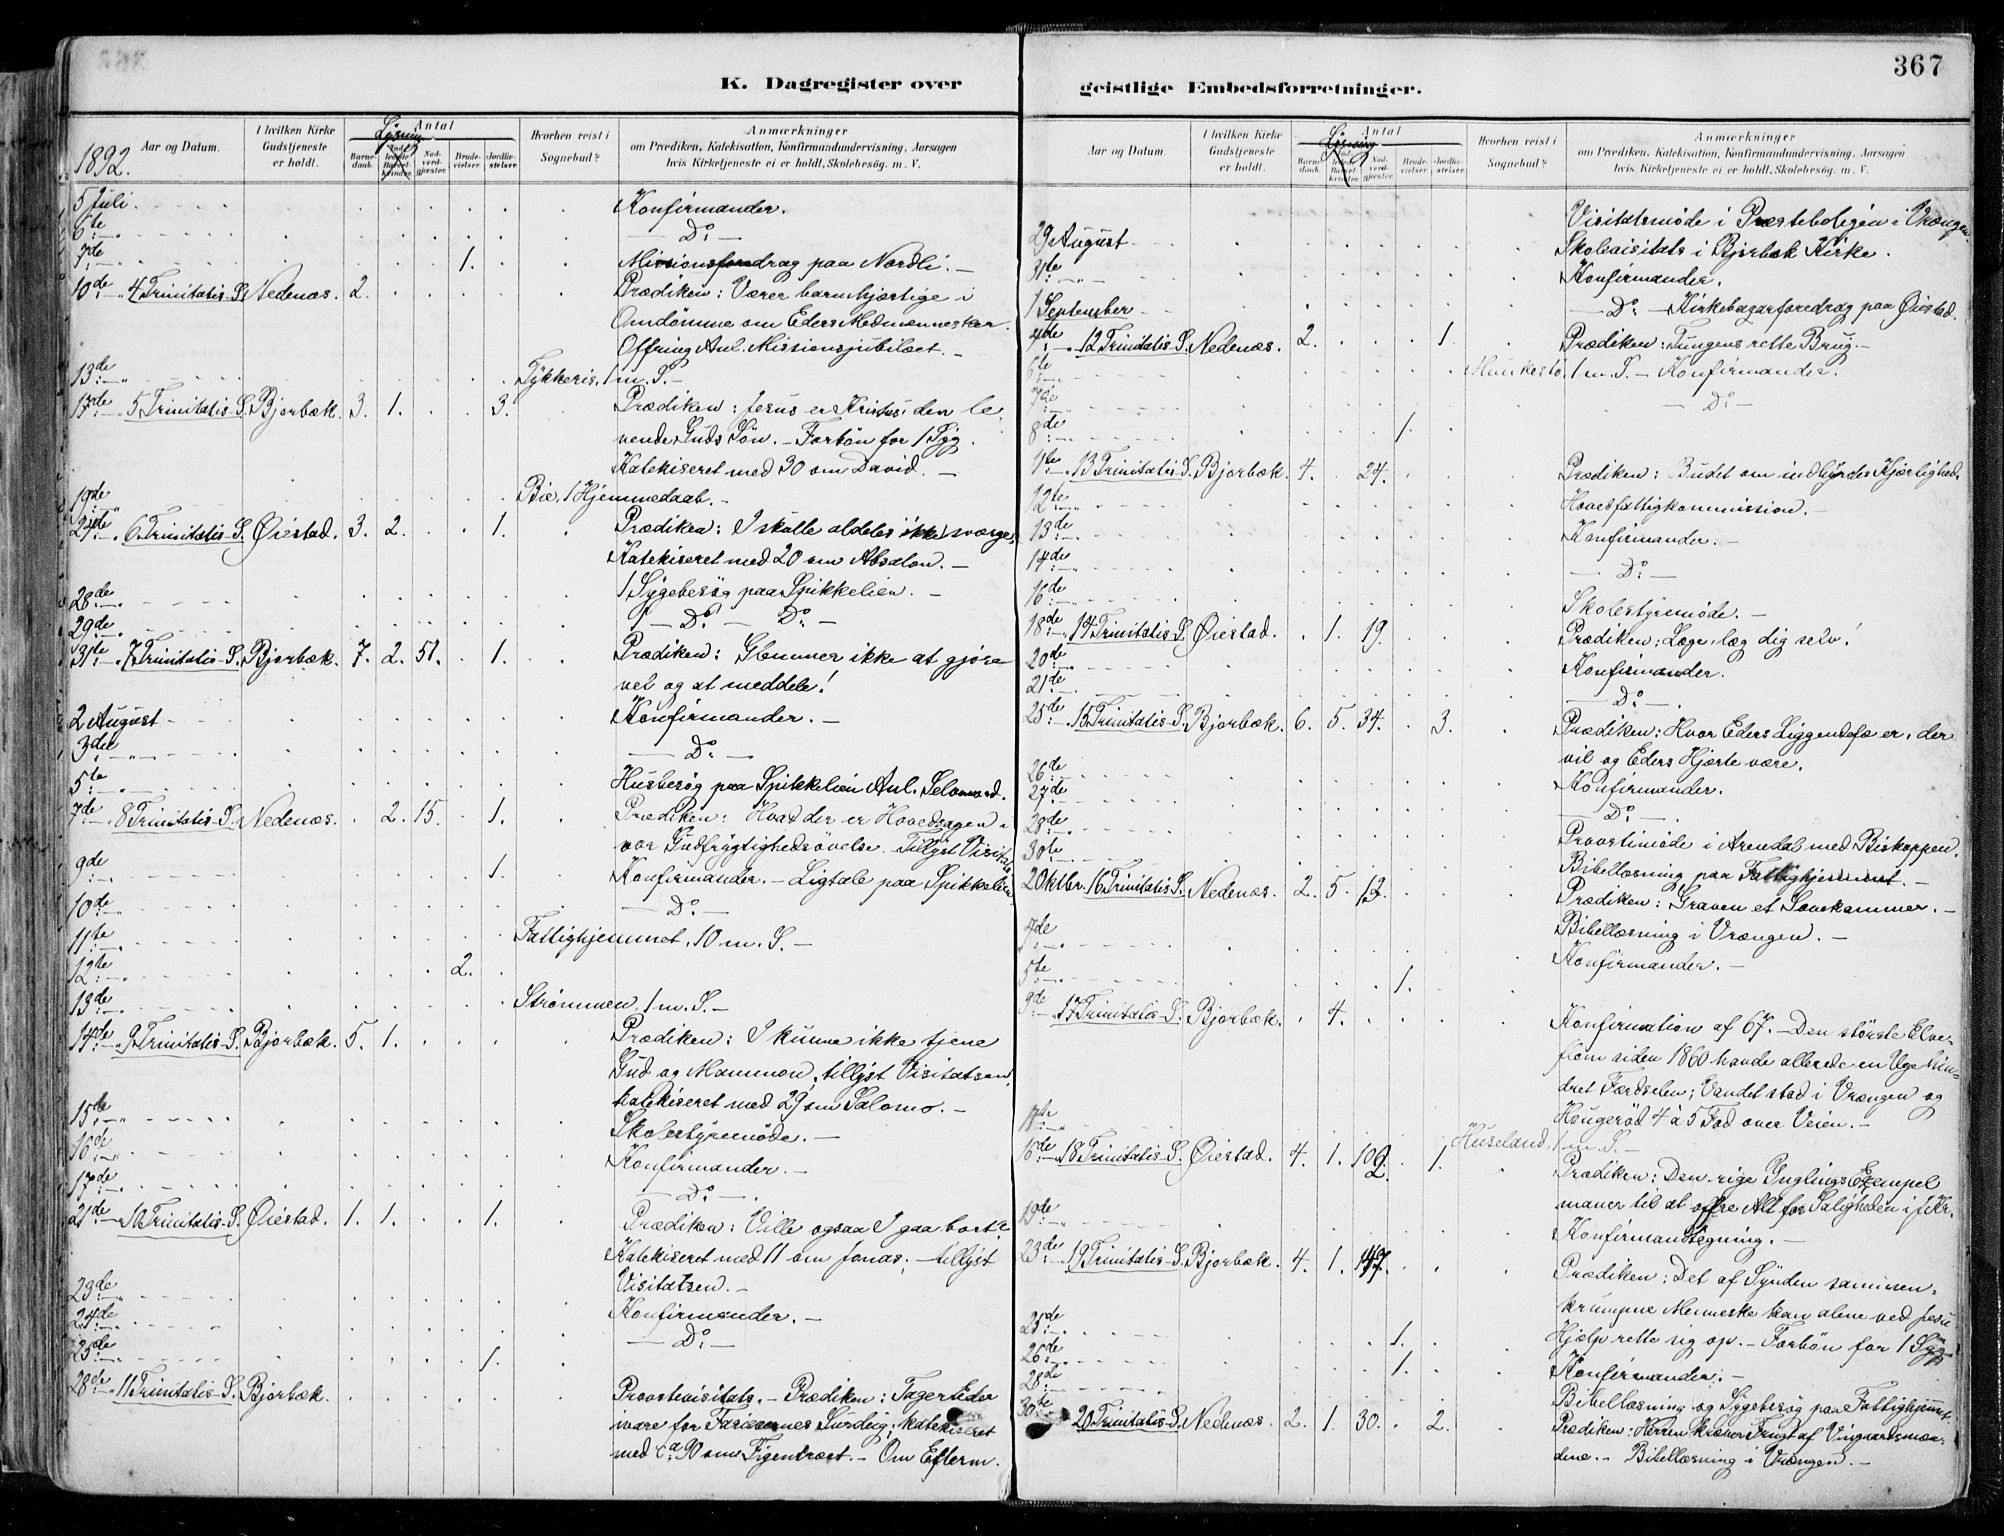 367
K. Dagregister over geistlige Embedsforretninger.
Aar og Datum.
I hvilken Kirke Gudstjeneste er holdt.
Antal
Lysning
Barnedaab.
Indledede Barselkvinder.
Nadverdgjæster.
Brudevielser.
Jordkestelser.
Hvorhen reist i Sognebud?
Anmærkninger
om Prædiken, Katekisation, Konfirmandundervisning, Aarsagen
hvis Kirketjeneste ei er holdt, Skolebesøg. m. V.
1892.
5 Juli. Konfirmander.
6te — Do: —
7de 1. Missionsforedrag paa Nordli. —
10de 4 Trinitatis S. Nedenæs. 2. Prædiken: Værer barmhjærtige i
Omdömme om Eders Medmennesker.
Offring Anl. Missionsjubilæet. —
13de Tykkeris, 1 m. S. —
17de 5 Trinitatis S. Bjorbæk. 3. 1. 3. Prædiken: Jesus er Kristus, den le-
vende Guds Sön. — Forbön for 1 Syg.
Katekiseret med 30 om David. —
19de Bie. 1 Hjemmedaab. —
24de 6 Trinitatis S. Øiestad. 3. 2. 1. Prædiken: I skulle aldeles ikke sværge,
Katekiseret med 20 om Absalon. —
28de 1 Sygebesög paa Spikkelien. —
29de 1 — Do — Do: —
31te 7 Trinitatis S. Bjorbæk. 7. 2. 51. 1. Prædiken: Glemmer ikke at gjöre
vel og at meddele!
2 August Konfirmander. —
3die — Do: —
5te Husbesög paa Spikkelien Anl. Selvmord.
7de 8 Trinitatis S. Nedenæs. 2. 15. 1. Prædiken: Hvad der er Hovedsagen i
vor Gudfrygtighedsövelse. Tillyst Visitats
9de 1. Konfirmander. — Ligtale paa Spikkelien.
10de — Do —
11te Fattighjemmet, 10 m. S. —
12te 2.
13de Strömmen, 1 m. S. —
14de 9 Trinitatis S. Bjorbæk. 5. 1. Prædiken: I kunne ikke tjene
Gud og Mammon; tillyst Visitatsen,
katekiseret med 29 om Salomo. —
15de Skolestyremöde. —
16de Konfirmander. —
17de — Do: —
21de 10 Trinitatis S. Øiestad. 1. 1. 1. Prædiken: Ville ogsaa I gaa bort?
Katekiseret med 11 om Jonas; — tillyst
Visitatsen. —
23de Konfirmander. —
24de — Do: —
25de 1.
28de 11 Trinitatis S. Bjorbæk. Provstevisitats. — Prædiken: Tager Eder
ivare for Farisæernes Surdeig; katekiseret
med ca 90 om Figentræet. — Om Efterm.
Visitatsmöde i Præsteboligen i Vrængen.
29 August Skolevisitats i Bjorbæk Kirke.
31te Konfirmander.
1 September — Do: — Kirkebazarforedrag paa Øiestad.
4de 12 Trinitatis S. Nedenæs. 2. 1. Prædiken: Tungens rette Brug. —
6te 1 m. S. — Konfirmander.
7de — Do: —
8de 1.
11te 13 Trinitatis S. Bjorbæk. 4. 24. Prædiken: Budet om indbyrdes Kjærlighed.
12te Hovedfattigkommission. —
13de Konfirmander. —
14de — Do: —
16de Skolestyremöde. —
18de 14 Trinitatis S. Øiestad. 1. 19. Prædiken: Læge, læg dig selv!
20de Konfirmander.
21de — Do: —
25de 15 Trinitatis S. Bjorbæk. 6. 5. 34. 3. Prædiken: Hvor Eders Liggendefæ er, der
vil og Eders Hjærte være.
26de Konfirmander.
27de — Do: —
28de Provstimöde i Arendal med Biskoppen.
30te Bibellæsning paa Fattighjemmet. —
2 Oktbr. 16 Trinitatis S. Nedenæs. 2. 5. 12. Prædiken: Graven et Sovekammer. —
4de Bibellæsning i Vrængen. —
5te 1. Konfirmander. —
9de 17 Trinitatis S. Bjorbæk. 4. Konfirmation af 67. — Den störste Elve-
flom siden 1860 havde allerede en Uge hin-
dret Færdselen; Vandet stod i Vrængen og
Haugeröd 4 à 5 Fod over Veien. —
11te Huseland, 1 m. S. —
16de 18 Trinitatis S. Øiestad. 4. 1. 102. 1. Prædiken: Den rige Ynglings Exempel
maner til at offre Alt for Saligheden i J. Kr.
19de Konfirmandtegning. —
23de 19 Trinitatis S. Bjorbæk. 4. 1. 147. Prædiken: Det af Synden sammen-
krumpne Menneske kan alene ved Jesu
Hjælp rette sig op. — Forbön for 1 Syg.
25de 1.
26de 1. Konfirmander. —
28de Bibellæsning og Sygebesög paa Fattighjemmet.
30te 20 Trinitatis S. Nedenæs. 2. 1. 30. 2. Prædiken: Herren kræver Frugt af Vingaardsmæn-
dene. — Bibellæsning i Vrængen. —